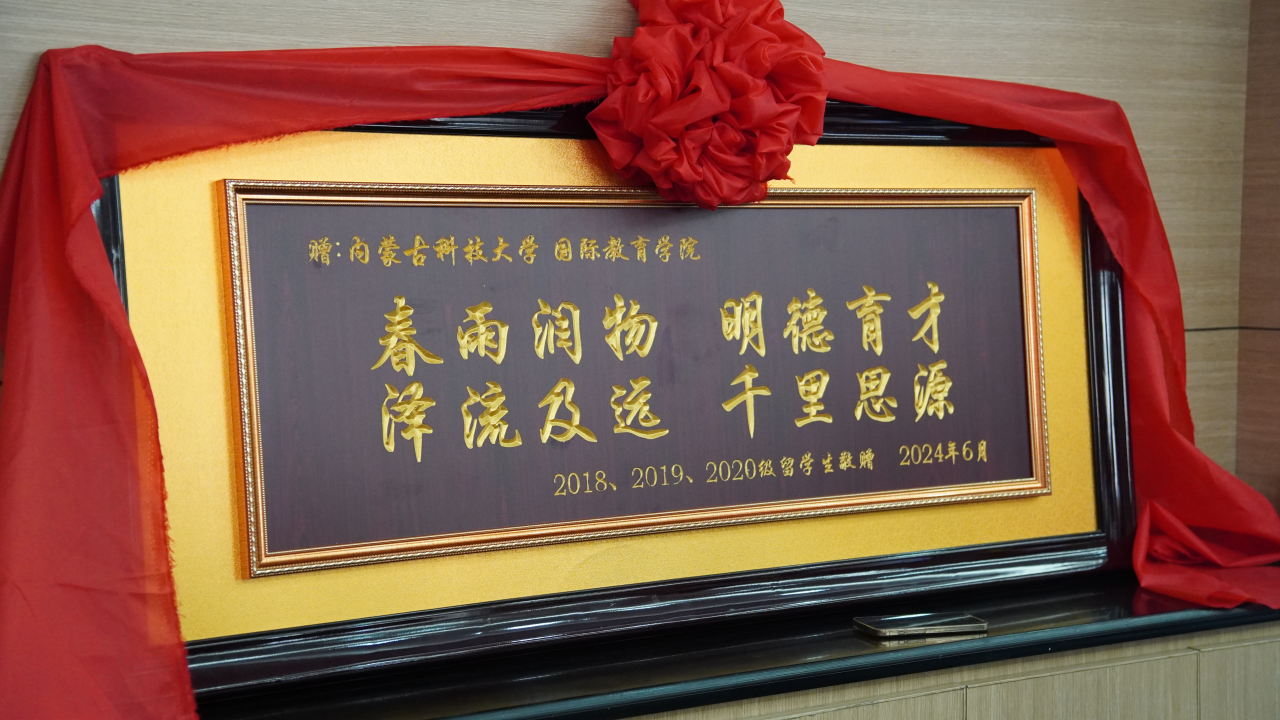 赠:内蒙古科技大学 国际教育学院
春雨润物 明德育才
泽流及远 千里思源
2018、2019、2020级留学生敬赠 2024年6月